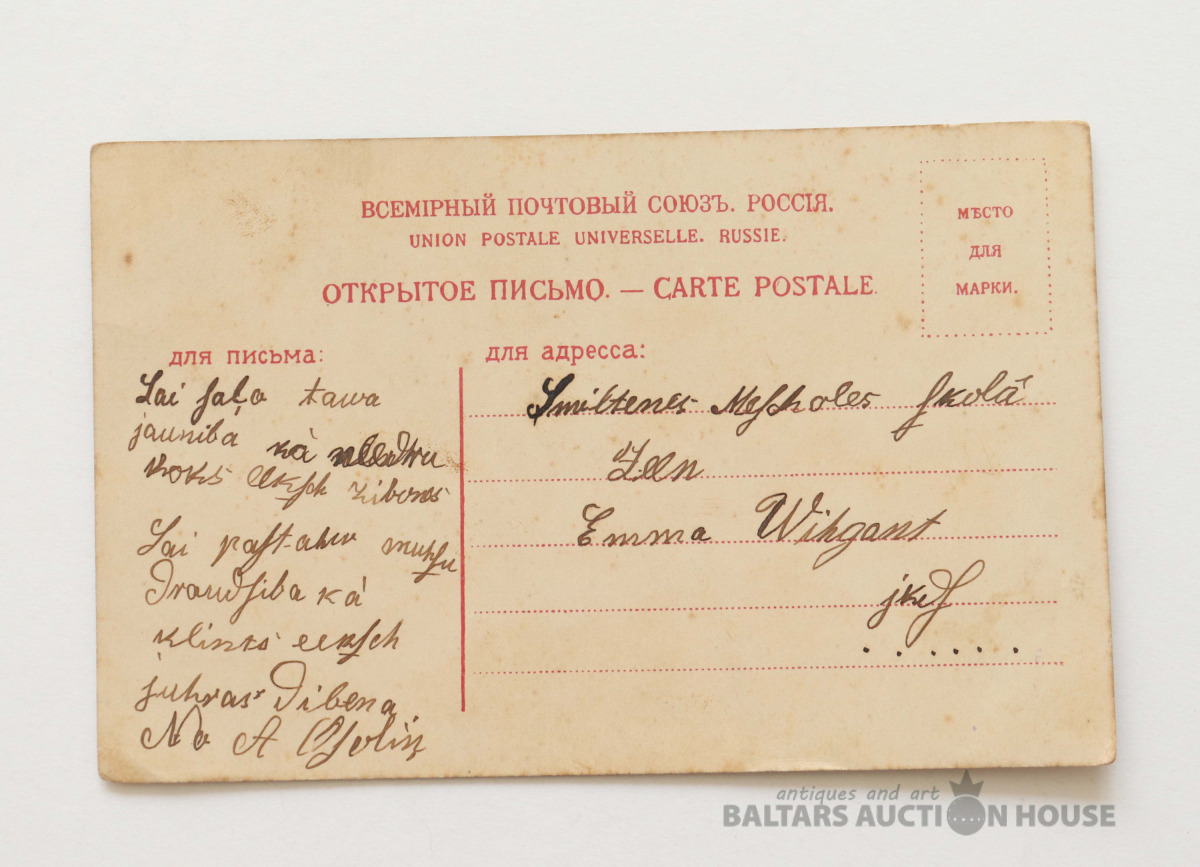 ВСЕМІРНЫЙ ПОЧТОВЫЙ СОЮЗЪ. РОССІЯ.
UNION POSTALE UNIVERSELLE. RUSSIE.
ОТКРЫТОЕ ПИСЬМО. — CARTE POSTALE.
МѢСТО
ДЛЯ
МАРКИ.
для письма:
Lai saļo tawa
jauniba kà
koks eeksch
Lai pastahw muhsu
draudsiba kà
klints eeksch
juhras dibena
No A Osoliņ
для адресса:
Smiltenes skolâ
Emma Wihgant
antiques and art
BALTARS AUCTION HOUSE